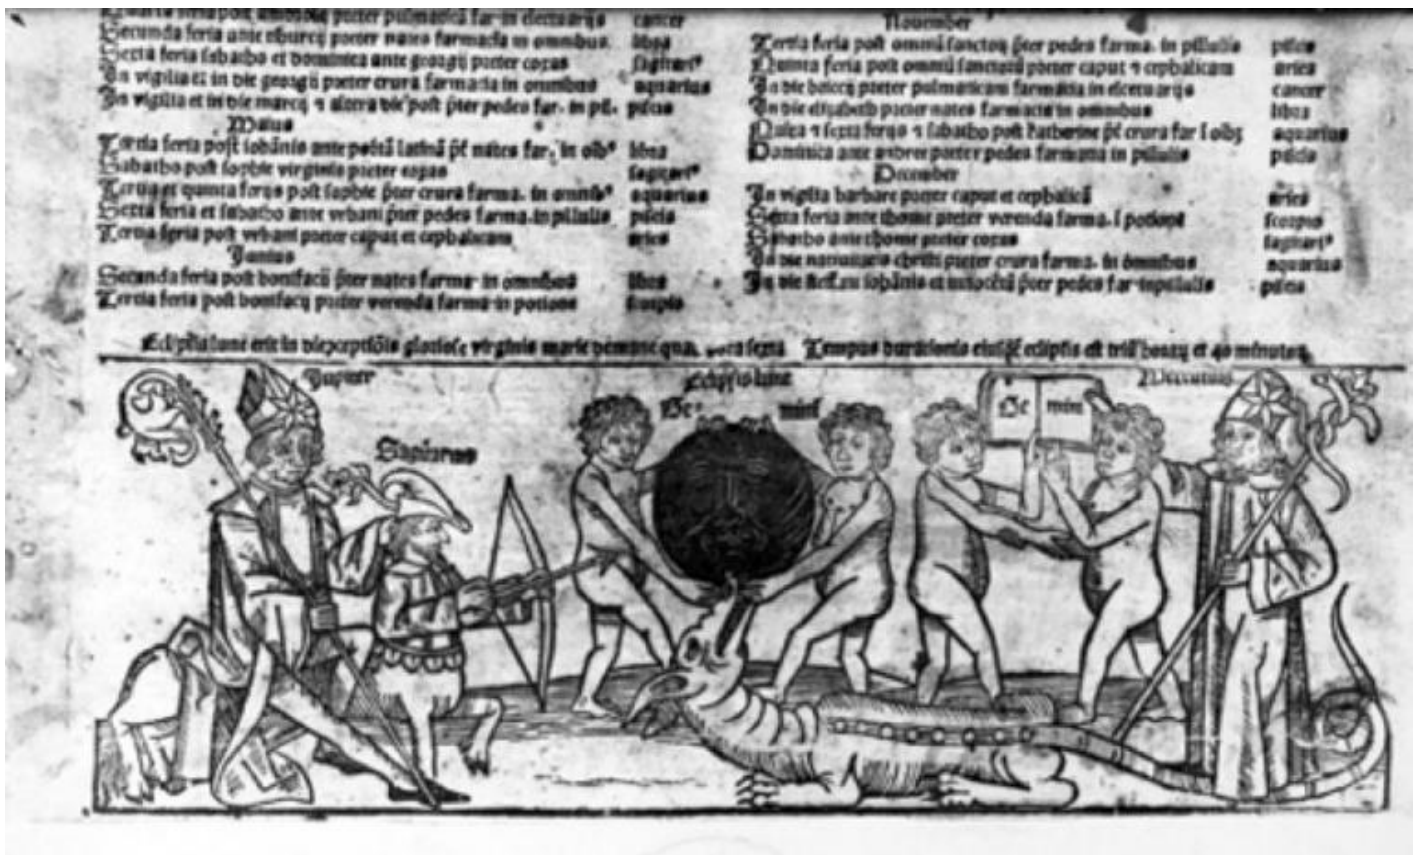 Secunda feria ante tiburcij preter nates farmacia in omnibus. libra
Sexta feria sabatho et dominica ante georgij preter coxas sagitari⁹
In vigilia et in die georgij preter crura farmacia in omnibus aquarius
In vigilia et in die marcij ⁊ altera die post p̄ter pedes far. in pil. piscis
Maius
Tertia feria post iohānis ante portā latinā p̄t nates far. in oīb⁹ libra
Sabatho post sophie virginis preter coxas sagitari⁹
Tertia et quinta ferijs post sophie p̄ter crura farma. in omnib⁹ aquarius
Sexta feria et sabatho ante vrbani p̄ter pedes farma. in pillulis piscis
Tertia feria post vrbani preter caput et cephalicam aries
Junius
Secunda feria post bonifacij p̄ter nates farma. in omnibus libra
Tertia feria post bonifacij preter verenda farma. in potione scorpio
Nouember
Tertia feria post omniū sanctoꝝ p̄ter pedes farma. in pillulis piscis
Quinta feria post omniū sanctorū preter caput ⁊ cephalicam aries
In die preter pulmaticam farmacia in electuarijs cancer
In die elizabeth preter nates farmacia in omnibus libra
⁊ sexta ferijs ⁊ sabatho post katherine p̄t crura far ī oībꝫ aquarius
Dominica ante andree preter pedes farmacia in pillulis piscis
December
In vigilia barbare preter caput et cephalicā aries
Sexta feria ante thome preter verenda farma. ī potione scorpio
Sabatho ante thome preter coxas sagitari⁹
In die natiuitatis christi preter crura farma. in omnibus aquarius
In die steffani iohānis et innocētū p̄ter pedes far. in pilulis piscis
Eclipsis lune erit in die gloriose virginis marie de mane hora sexta Tempus durationis eiusdē eclipsis est triū horaꝝ et 40 minutoꝝ
Jupiter
Eclipsis lune
Mercurius
Ge- mini
Ge mini
Sagitarius